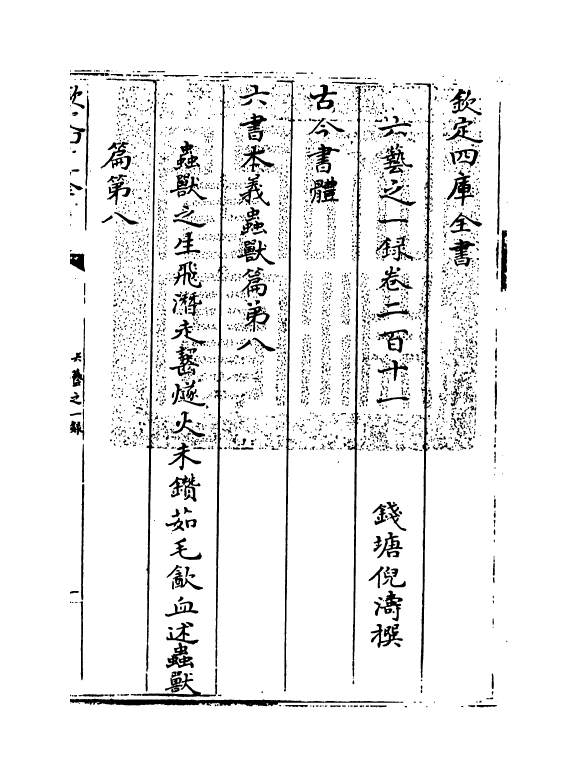 欽定四庫全書
六藝之一録卷二百十一
錢塘倪濤撰
古今書體
六書本義蟲獸篇第八
蟲獸之生飛潛走齧燧火未鑽茹毛飲血述蟲獸
篇第八
六藝之一録
一